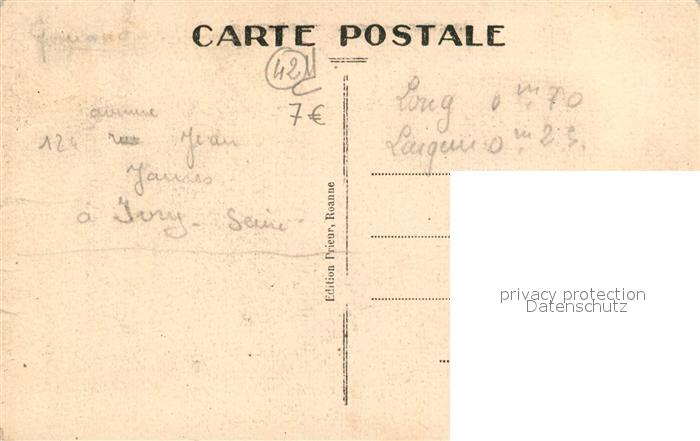 CARTE POSTALE
42
7€
avenue
124 rue Jean
Jaurès
à Ivry - Seine
Long 0 m 70
Largeur 0 m 25.
Edition Prieur, Roanne
privacy protection
Datenschutz